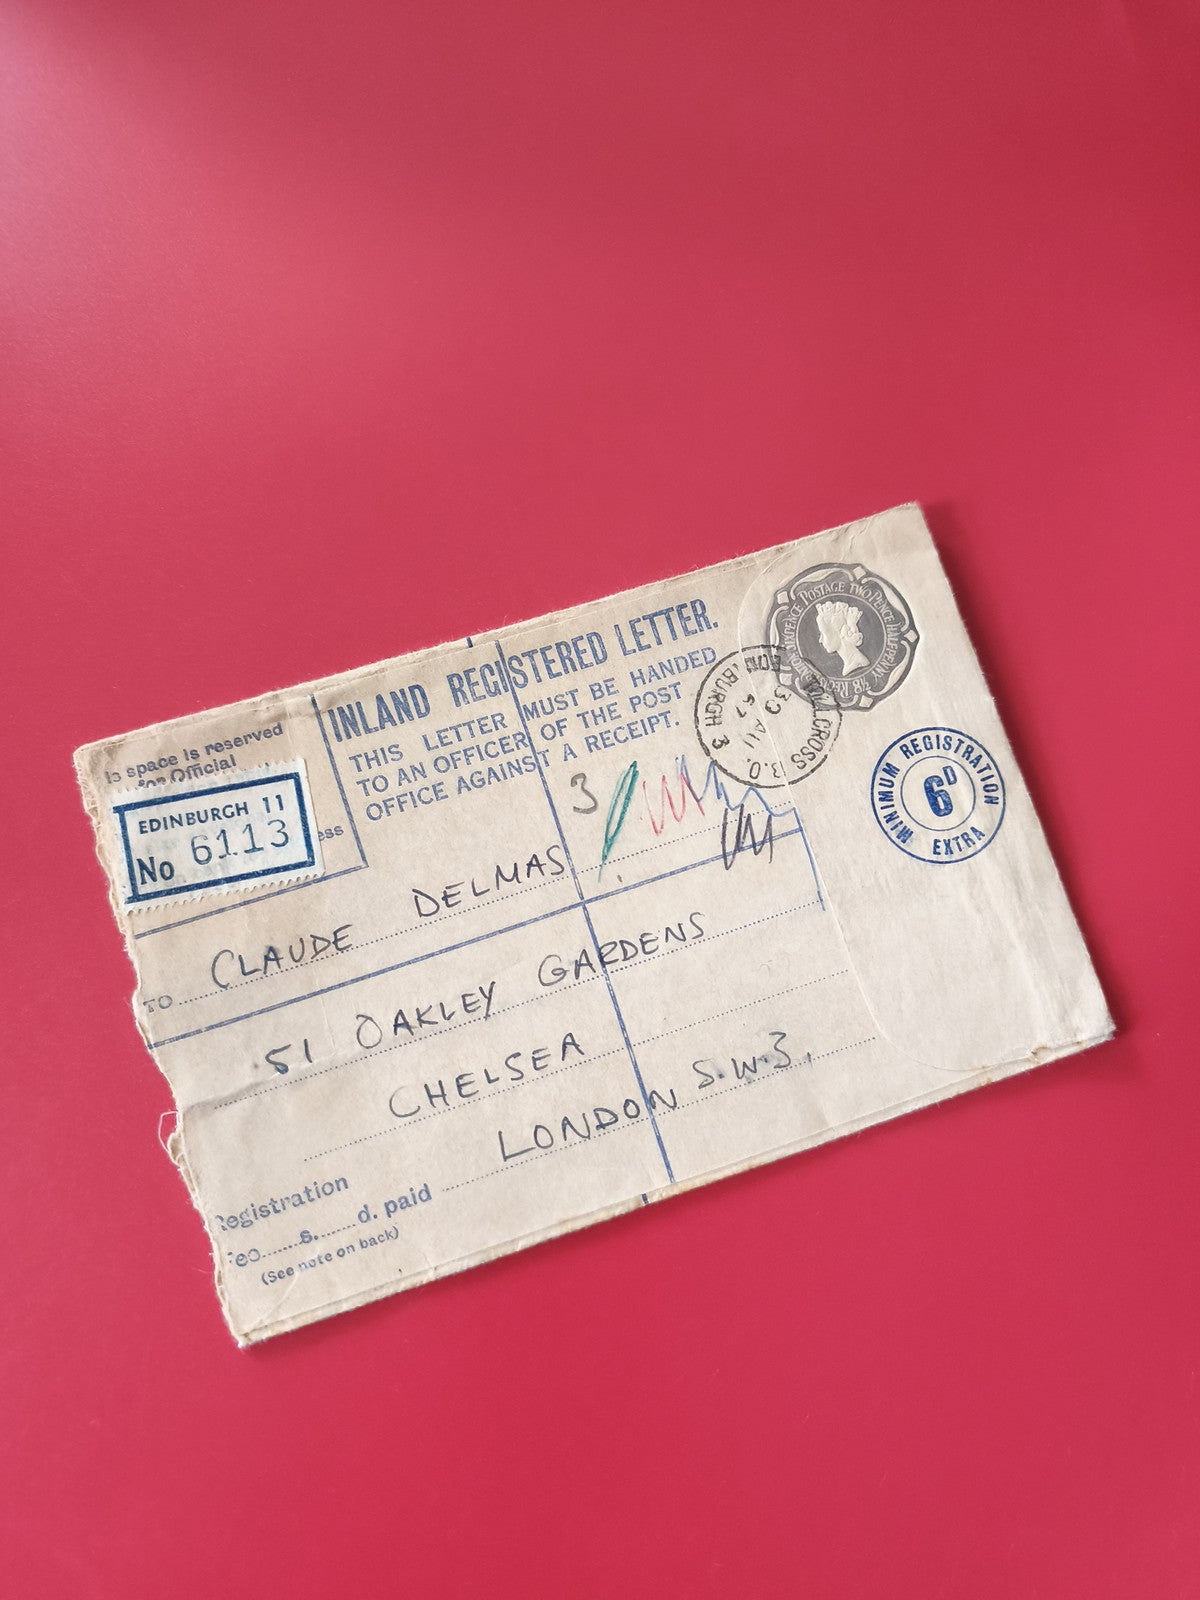 is space is reserved
for Official
EDINBURGH 11
No 6113
ess
INLAND REGISTERED LETTER.
THIS LETTER MUST BE HANDED
TO AN OFFICER OF THE POST
OFFICE AGAINST A RECEIPT.
3
POSTAGE TWO PENCE HALFPENNY
BURGH 3
30 AU
MINIMUM REGISTRATION
6D
EXTRA
TO CLAUDE DELMAS
51 OAKLEY GARDENS
CHELSEA
LONDON S.W.3.
Registration
s. d. paid
(See note on back)